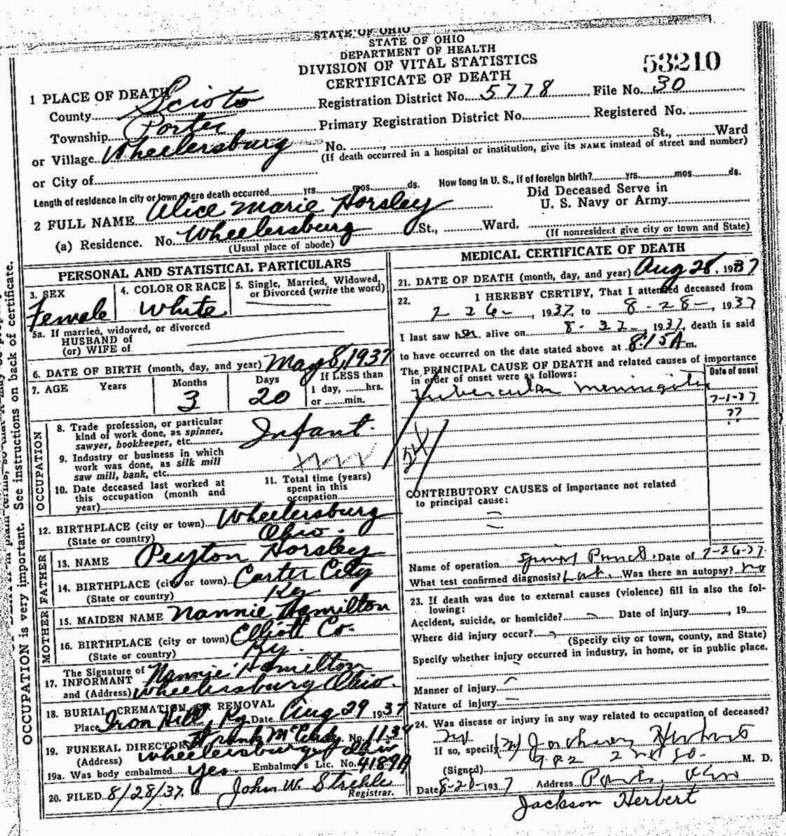 STATE OF OHIO
STATE OF OHIO
DEPARTMENT OF HEALTH
DIVISION OF VITAL STATISTICS
CERTIFICATE OF DEATH
53210
1 PLACE OF DEATH
County Scioto Registration District No. 5778 File No. 30
Township Porter Primary Registration District No. Registered No.
or Village Wheelersburg No. St., Ward
(If death occurred in a hospital or institution, give its NAME instead of street and number)
or City of
Length of residence in city or town where death occurred yrs. mos. ds. How long in U. S., if of foreign birth? yrs. mos. ds.
2 FULL NAME Alice Marie Horsley Did Deceased Serve in U. S. Navy or Army
(a) Residence. No. Wheelersburg St., Ward.
(Usual place of abode) (If nonresident give city or town and State)
PERSONAL AND STATISTICAL PARTICULARS
3. SEX Female
4. COLOR OR RACE White
5. Single, Married, Widowed, or Divorced (write the word)
5a. If married, widowed, or divorced
HUSBAND of
(or) WIFE of
6. DATE OF BIRTH (month, day, and year) May 8, 1937
7. AGE Years Months 3 Days 20 If LESS than 1 day, hrs. or min.
OCCUPATION
8. Trade, profession, or particular kind of work done, as spinner, sawyer, bookkeeper, etc. Infant
9. Industry or business in which work was done, as silk mill saw mill, bank, etc.
10. Date deceased last worked at this occupation (month and year)
11. Total time (years) spent in this occupation
12. BIRTHPLACE (city or town) Wheelersburg
(State or country) Ohio.
FATHER
13. NAME Peyton Horsley
14. BIRTHPLACE (city or town) Carter City
(State or country) Ky
MOTHER
15. MAIDEN NAME Nannie Hamilton
16. BIRTHPLACE (city or town) Elliott Co.
(State or country) Ky.
17. The Signature of INFORMANT Nannie Hamilton
and (Address) Wheelersburg Ohio.
18. BURIAL, CREMATION OR REMOVAL
Place Iron Hill, Ky Date Aug 29 1937
19. FUNERAL DIRECTOR Frank No.
(Address) Wheelersburg Ohio
19a. Was body embalmed yes Embalmer's Lic. No. 4189A
20. FILED 8/28/37. John W. Strehle Registrar.
MEDICAL CERTIFICATE OF DEATH
21. DATE OF DEATH (month, day, and year) Aug 28, 1937
22. I HEREBY CERTIFY, That I attended deceased from
7-26-, 1937, to 8-28-, 1937
I last saw her alive on 8-27, 1937, death is said
to have occurred on the date stated above at 8:15A m.
The PRINCIPAL CAUSE OF DEATH and related causes of importance in order of onset were as follows:
Date of onset
Tubercular meningitis
7-1-37
??
CONTRIBUTORY CAUSES of importance not related to principal cause:
Name of operation Spinal Punct. Date of 7-26-37
What test confirmed diagnosis? Lab. Was there an autopsy? no
23. If death was due to external causes (violence) fill in also the following:
Accident, suicide, or homicide? Date of injury , 19
Where did injury occur?
(Specify city or town, county, and State)
Specify whether injury occurred in industry, in home, or in public place.
Manner of injury
Nature of injury
24. Was disease or injury in any way related to occupation of deceased?
If so, specify
(Signed) Jackson Herbert M. D.
922 2nd St.
Date 8-28-1937 Address Ports. Ohio
Jackson Herbert
OCCUPATION is very important. See instructions on back of certificate.